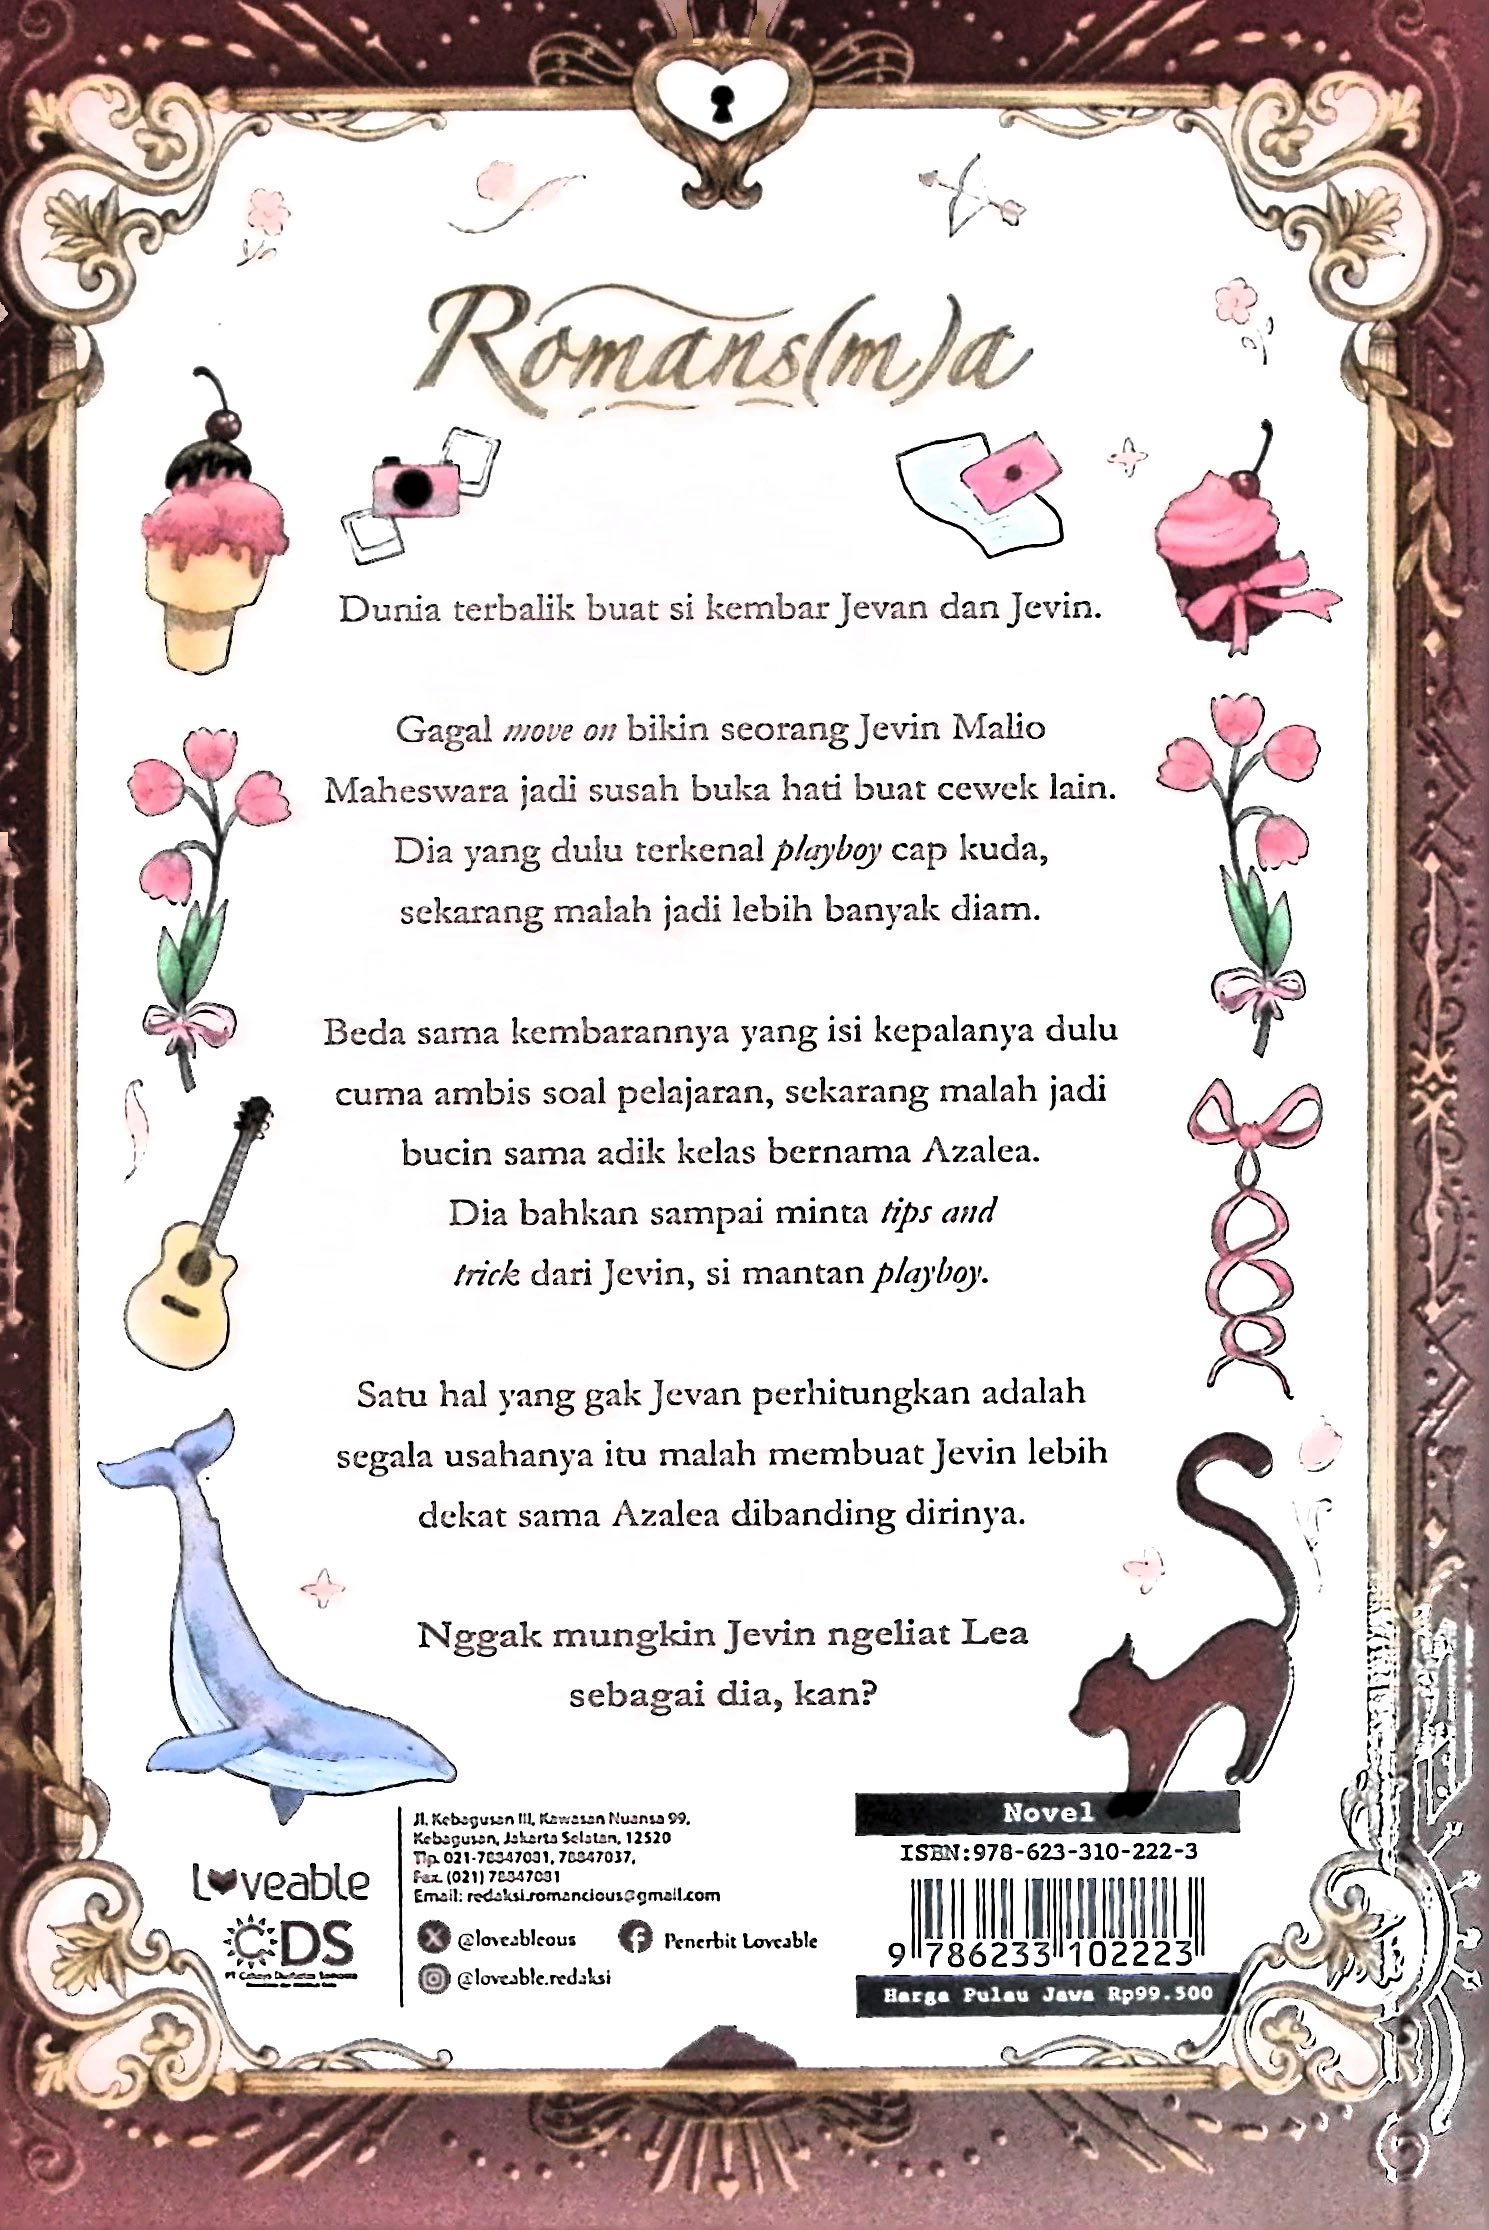 Romans(m)a
Dunia terbalik buat si kembar Jevan dan Jevin.
Gagal move on bikin seorang Jevin Malio
Maheswara jadi susah buka hati buat cewek lain.
Dia yang dulu terkenal playboy cap kuda,
sekarang malah jadi lebih banyak diam.
Beda sama kembarannya yang isi kepalanya dulu
cuma ambis soal pelajaran, sekarang malah jadi
bucin sama adik kelas bernama Azalea.
Dia bahkan sampai minta tips and
trick dari Jevin, si mantan playboy.
Satu hal yang gak Jevan perhitungkan adalah
segala usahanya itu malah membuat Jevin lebih
dekat sama Azalea dibanding dirinya.
Nggak mungkin Jevin ngeliat Lea
sebagai dia, kan?
Loveable
CDS
Jl. Kebagusan III, Kawasan Nuansa 99,
Kebagusan, Jakarta Selatan, 12520
Tlp. 021-78847081, 78847037,
Fax. (021) 78847081
Email: redaksi.romancious@gmail.com
@loveableous
Penerbit Loveable
@loveable.redaksi
Novel
ISBN:978-623-310-222-3
9 786233 102223
Harga Pulau Jawa Rp99.500